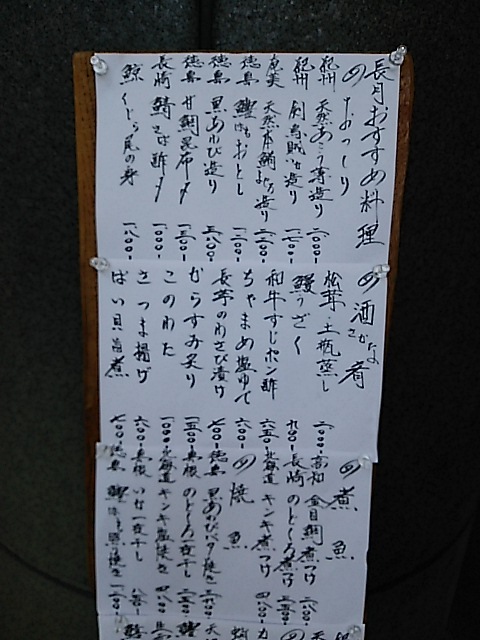 長月おすすめ料理
の おつくり
紀州 天然あこう薄造り 二、〇〇〇-
紀州 剣烏賊いか造り 一、七〇〇-
奄美 天然本鮪まぐろ造り 二、二〇〇-
徳島 鱧はもおとし 一、二〇〇-
徳島 黒あわび造り
徳島 甘鯛昆布〆 一、三〇〇-
長崎 鯖さば酢〆 一、〇〇〇-
鯨 くじら尾の身 一、八〇〇-
の 酒肴 さかな
松茸・土瓶蒸し
鰻うざく 九〇〇-
和牛すじポン酢 六五〇-
ちゃまめ塩ゆで 六〇〇-
長芋のわさび漬け 七〇〇-
からすみ炙り
このわた 一、〇〇〇-
さつま揚げ 六〇〇-
ばい貝旨煮 七〇〇-
の 煮魚
高知 金目鯛煮つけ
長崎 のどぐろ煮つけ
北海道 キンキ煮つけ
の 焼魚
徳島 黒あわびバタ焼き
島根 のどぐろ一夜干し
北海道 キンキ塩焼き
島根 いか一夜干し
徳島 鱧はも照り焼き